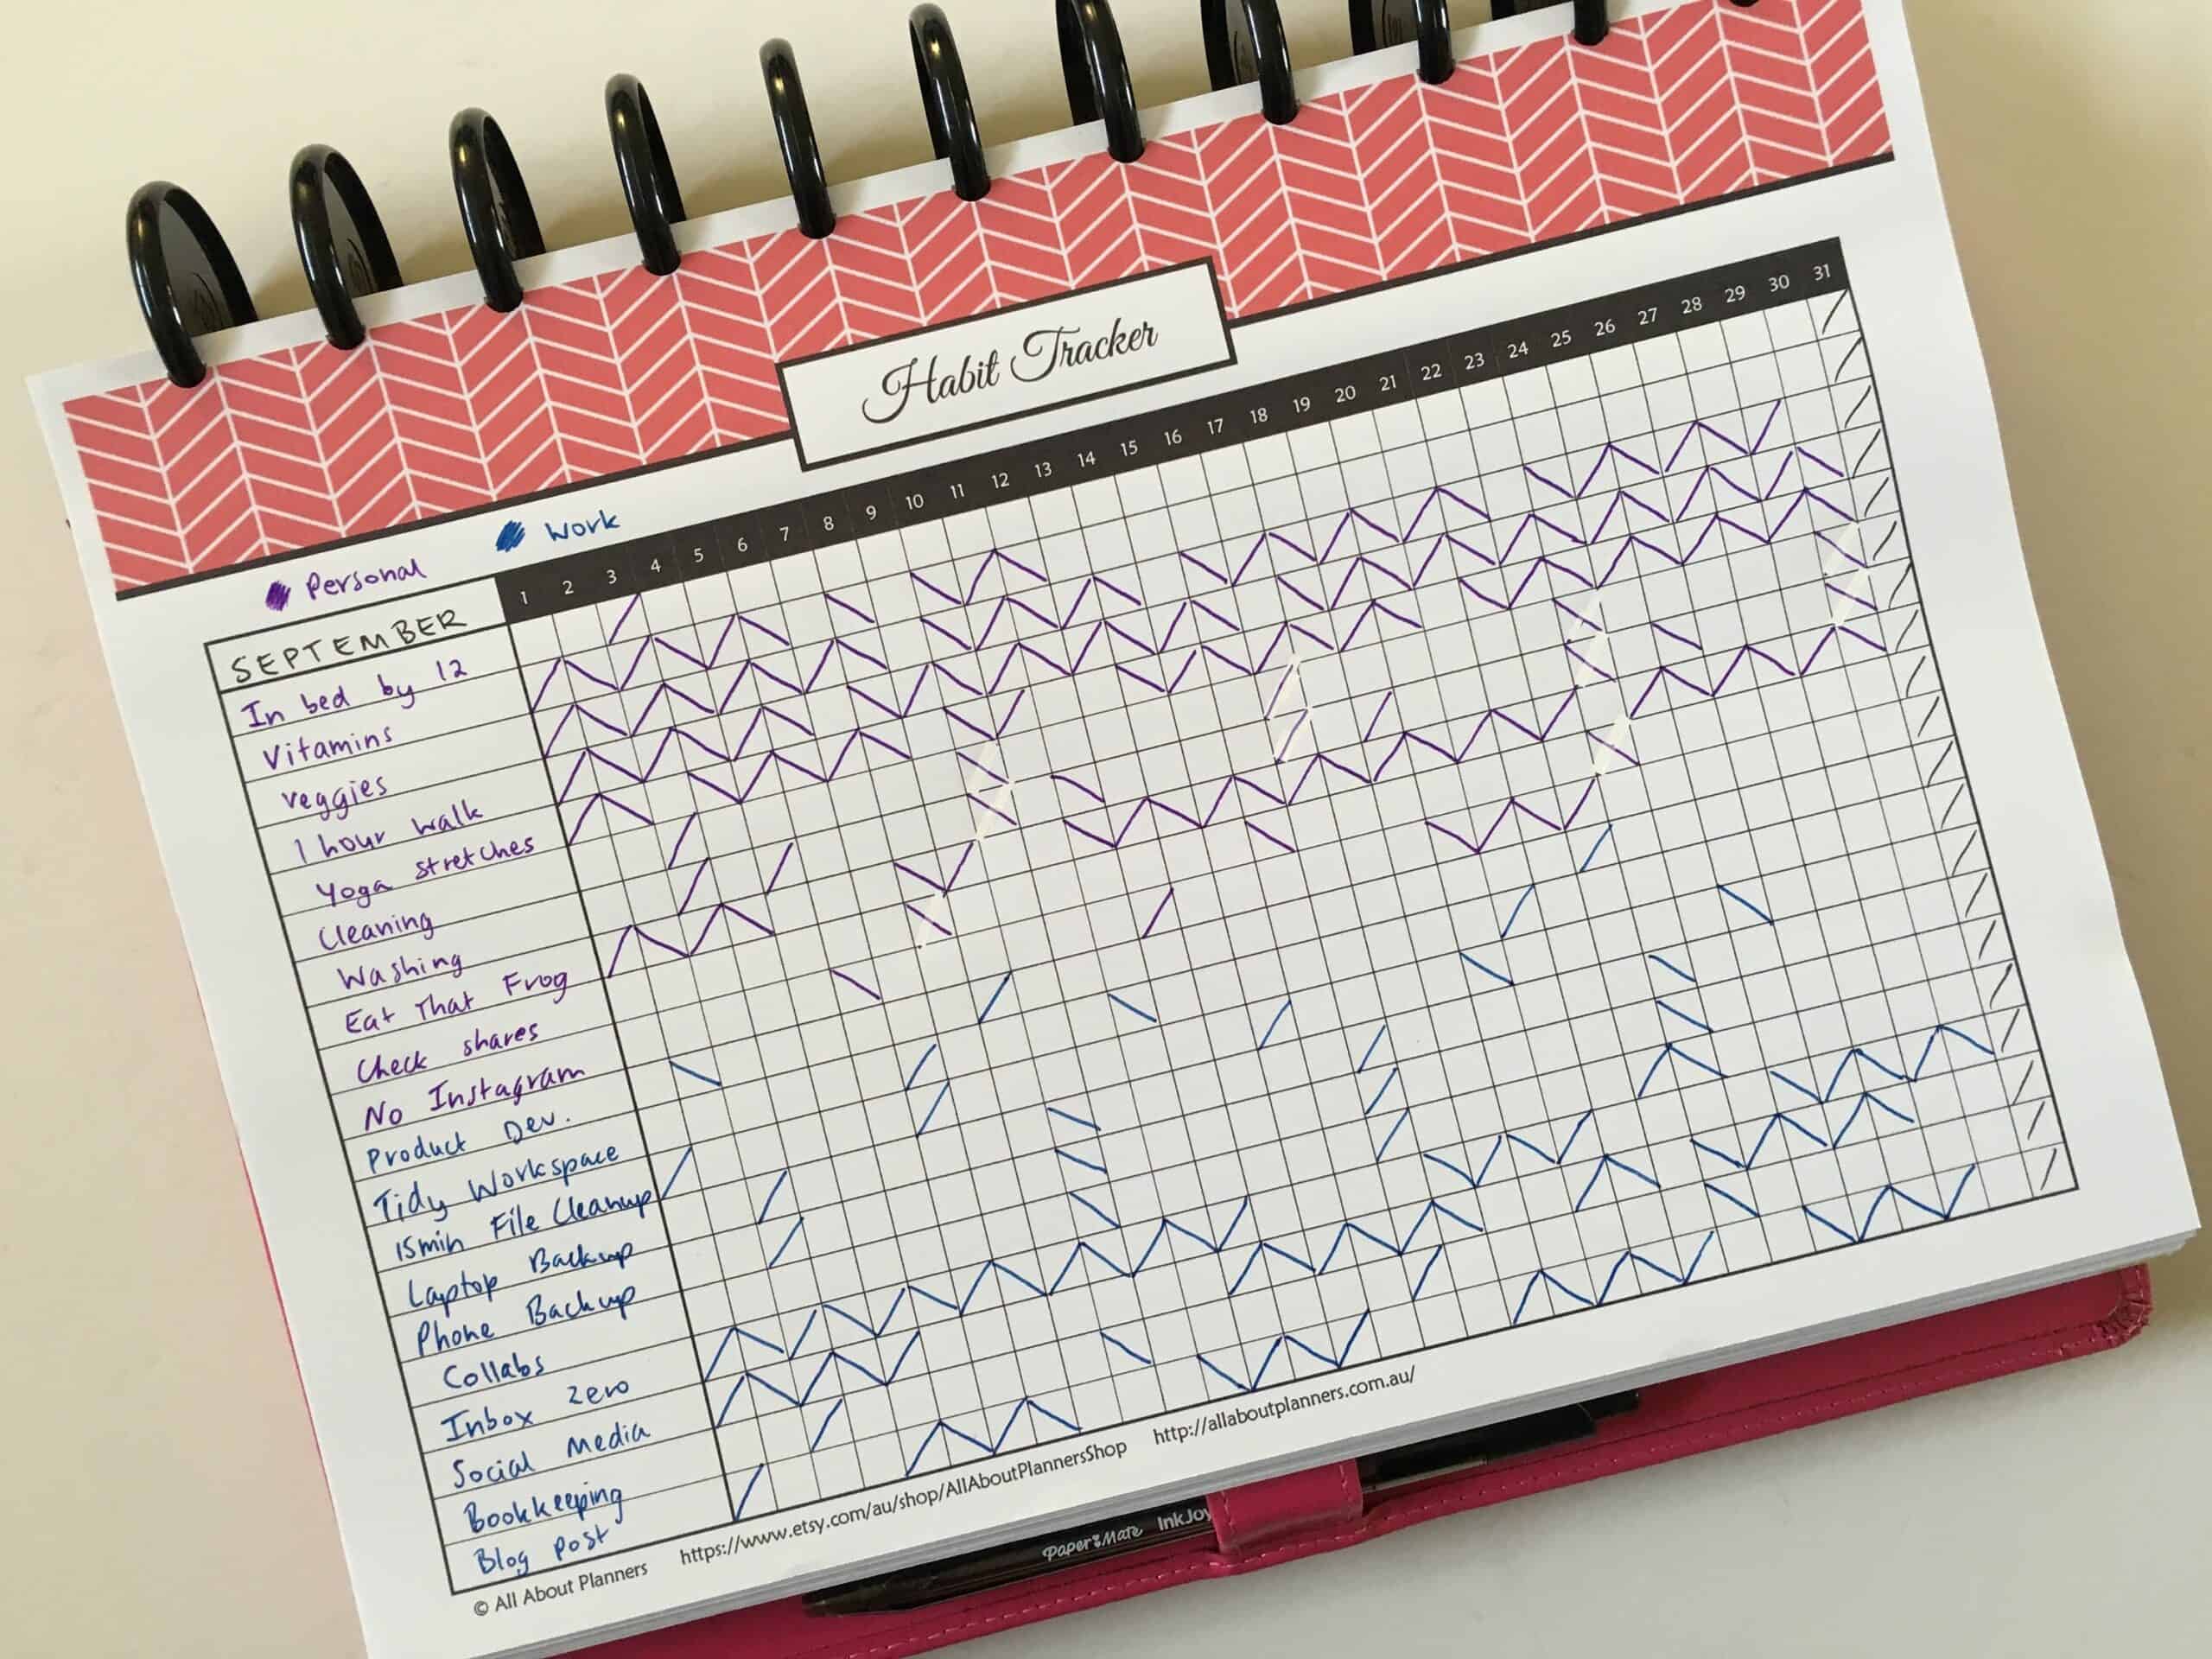 Habit Tracker
Personal
Work
SEPTEMBER 1 2 3 4 5 6 7 8 9 10 11 12 13 14 15 16 17 18 19 20 21 22 23 24 25 26 27 28 29 30 31
In bed by 12
Vitamins
veggies
1 hour walk
Yoga stretches
Cleaning
Washing
Eat That Frog
Check shares
No Instagram
Product Dev.
Tidy Workspace
15min File Cleanup
Laptop Backup
Phone Backup
Collabs
Inbox Zero
Social Media
Bookkeeping
Blog post
© All About Planners https://www.etsy.com/au/shop/AllAboutPlannersShop http://allaboutplanners.com.au/
Paper Mate InkJoy